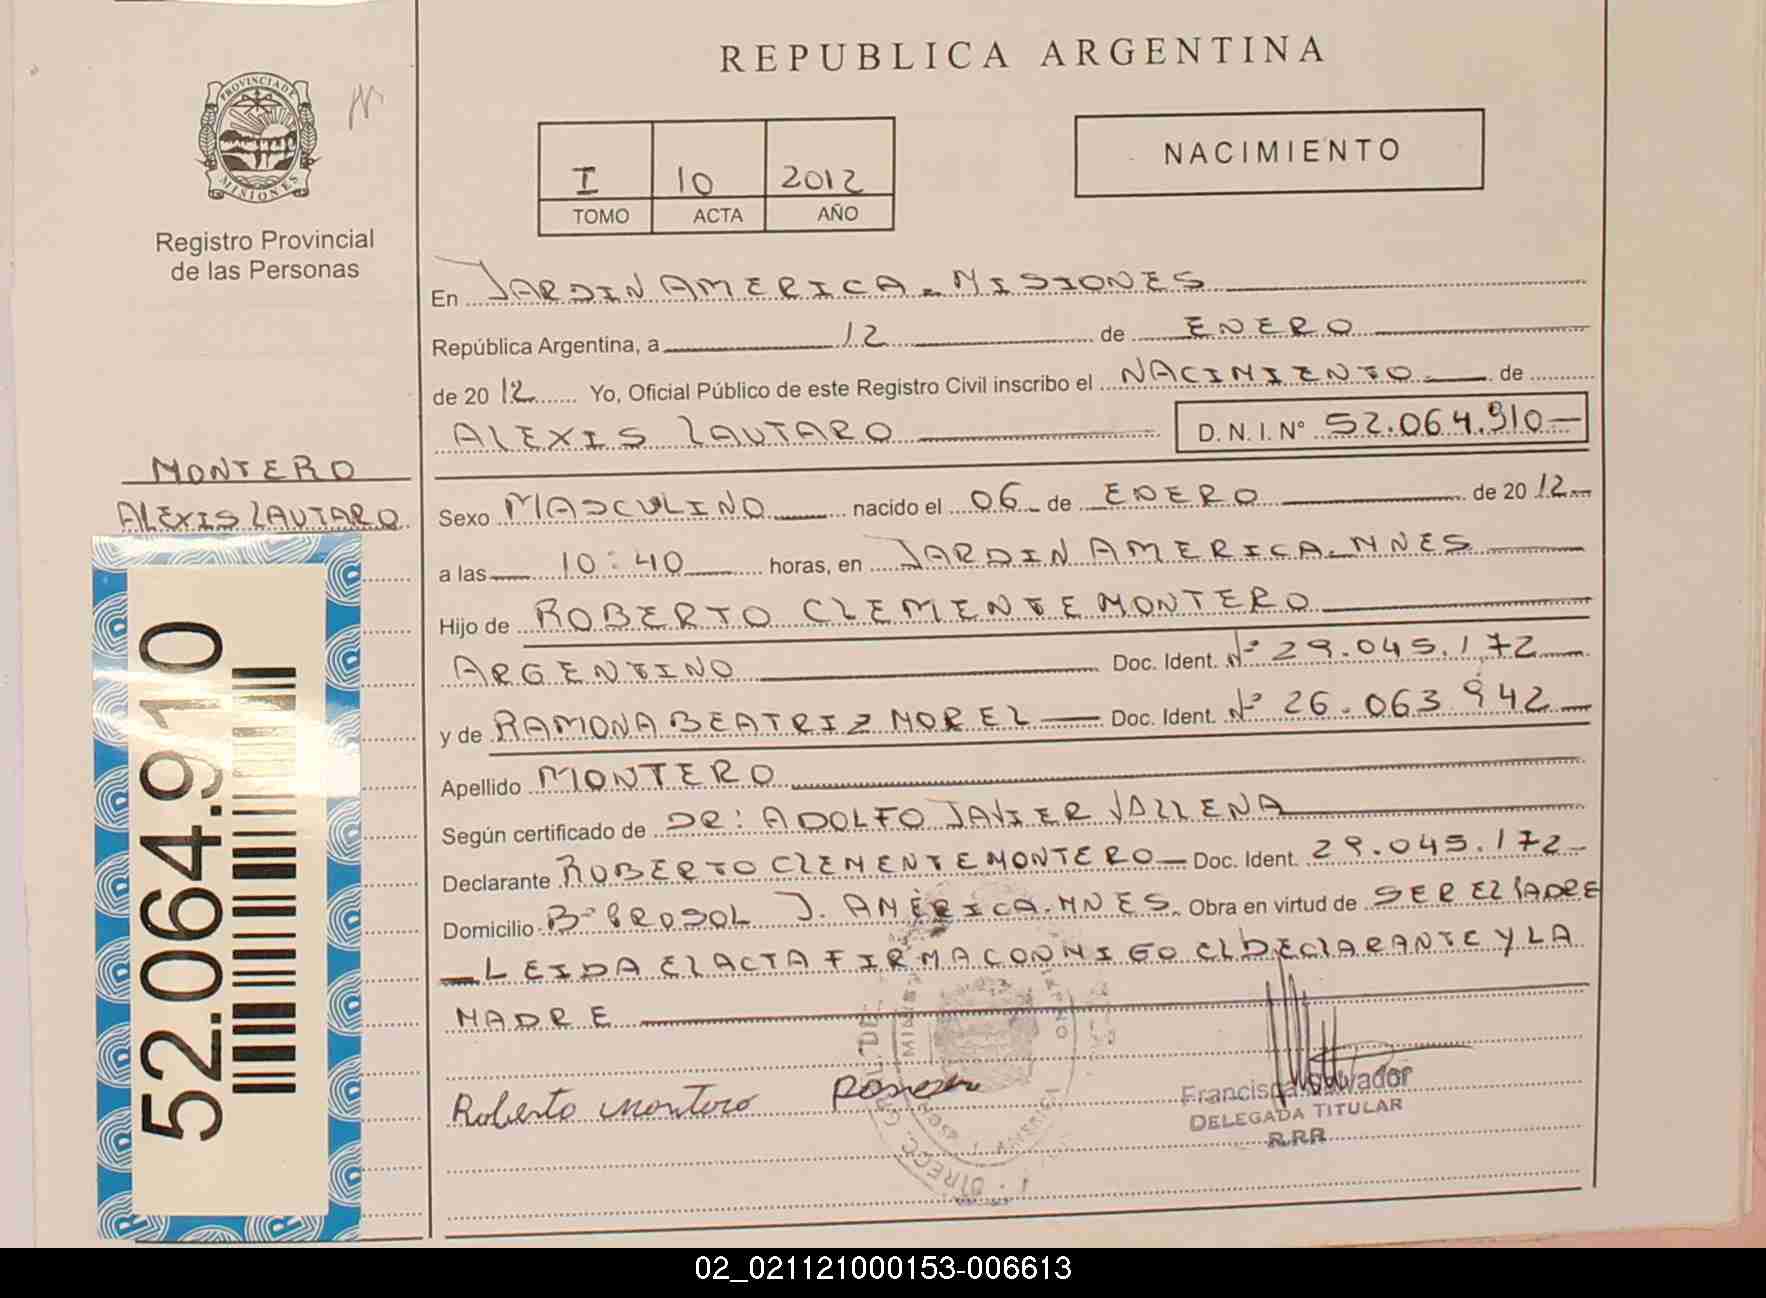 REPUBLICA ARGENTINA
PROVINCIA DE
MISIONES
Registro Provincial
de las Personas
I 10 2012
TOMO ACTA AÑO
NACIMIENTO
En JARDIN AMERICA - MISIONES
República Argentina, a 12 de ENERO
de 2012 Yo, Oficial Público de este Registro Civil inscribo el NACIMIENTO de
ALEXIS LAUTARO D. N. I. Nº 52.064.910
MONTERO
ALEXIS LAUTARO
Sexo MASCULINO nacido el 06 de ENERO de 2012
a las 10:40 horas, en JARDIN AMERICA - MNES
Hijo de ROBERTO CLEMENTE MONTERO
ARGENTINO Doc. Ident. Nº 29.045.172
y de RAMONA BEATRIZ MOREL Doc. Ident. Nº 26.063.942
Apellido MONTERO
Según certificado de DR: ADOLFO JAVIER
Declarante ROBERTO CLEMENTE MONTERO Doc. Ident. 29.045.172
Domicilio Bº PROSOL J. AMÉRICA. MNES. Obra en virtud de SER EL PADRE
LEIDA EL ACTA FIRMA CONMIGO EL DECLARANTE Y LA
MADRE
Roberto Montero
Francisca Salvador
DELEGADA TITULAR
R.P.P.
52.064.910
02_021121000153-006613